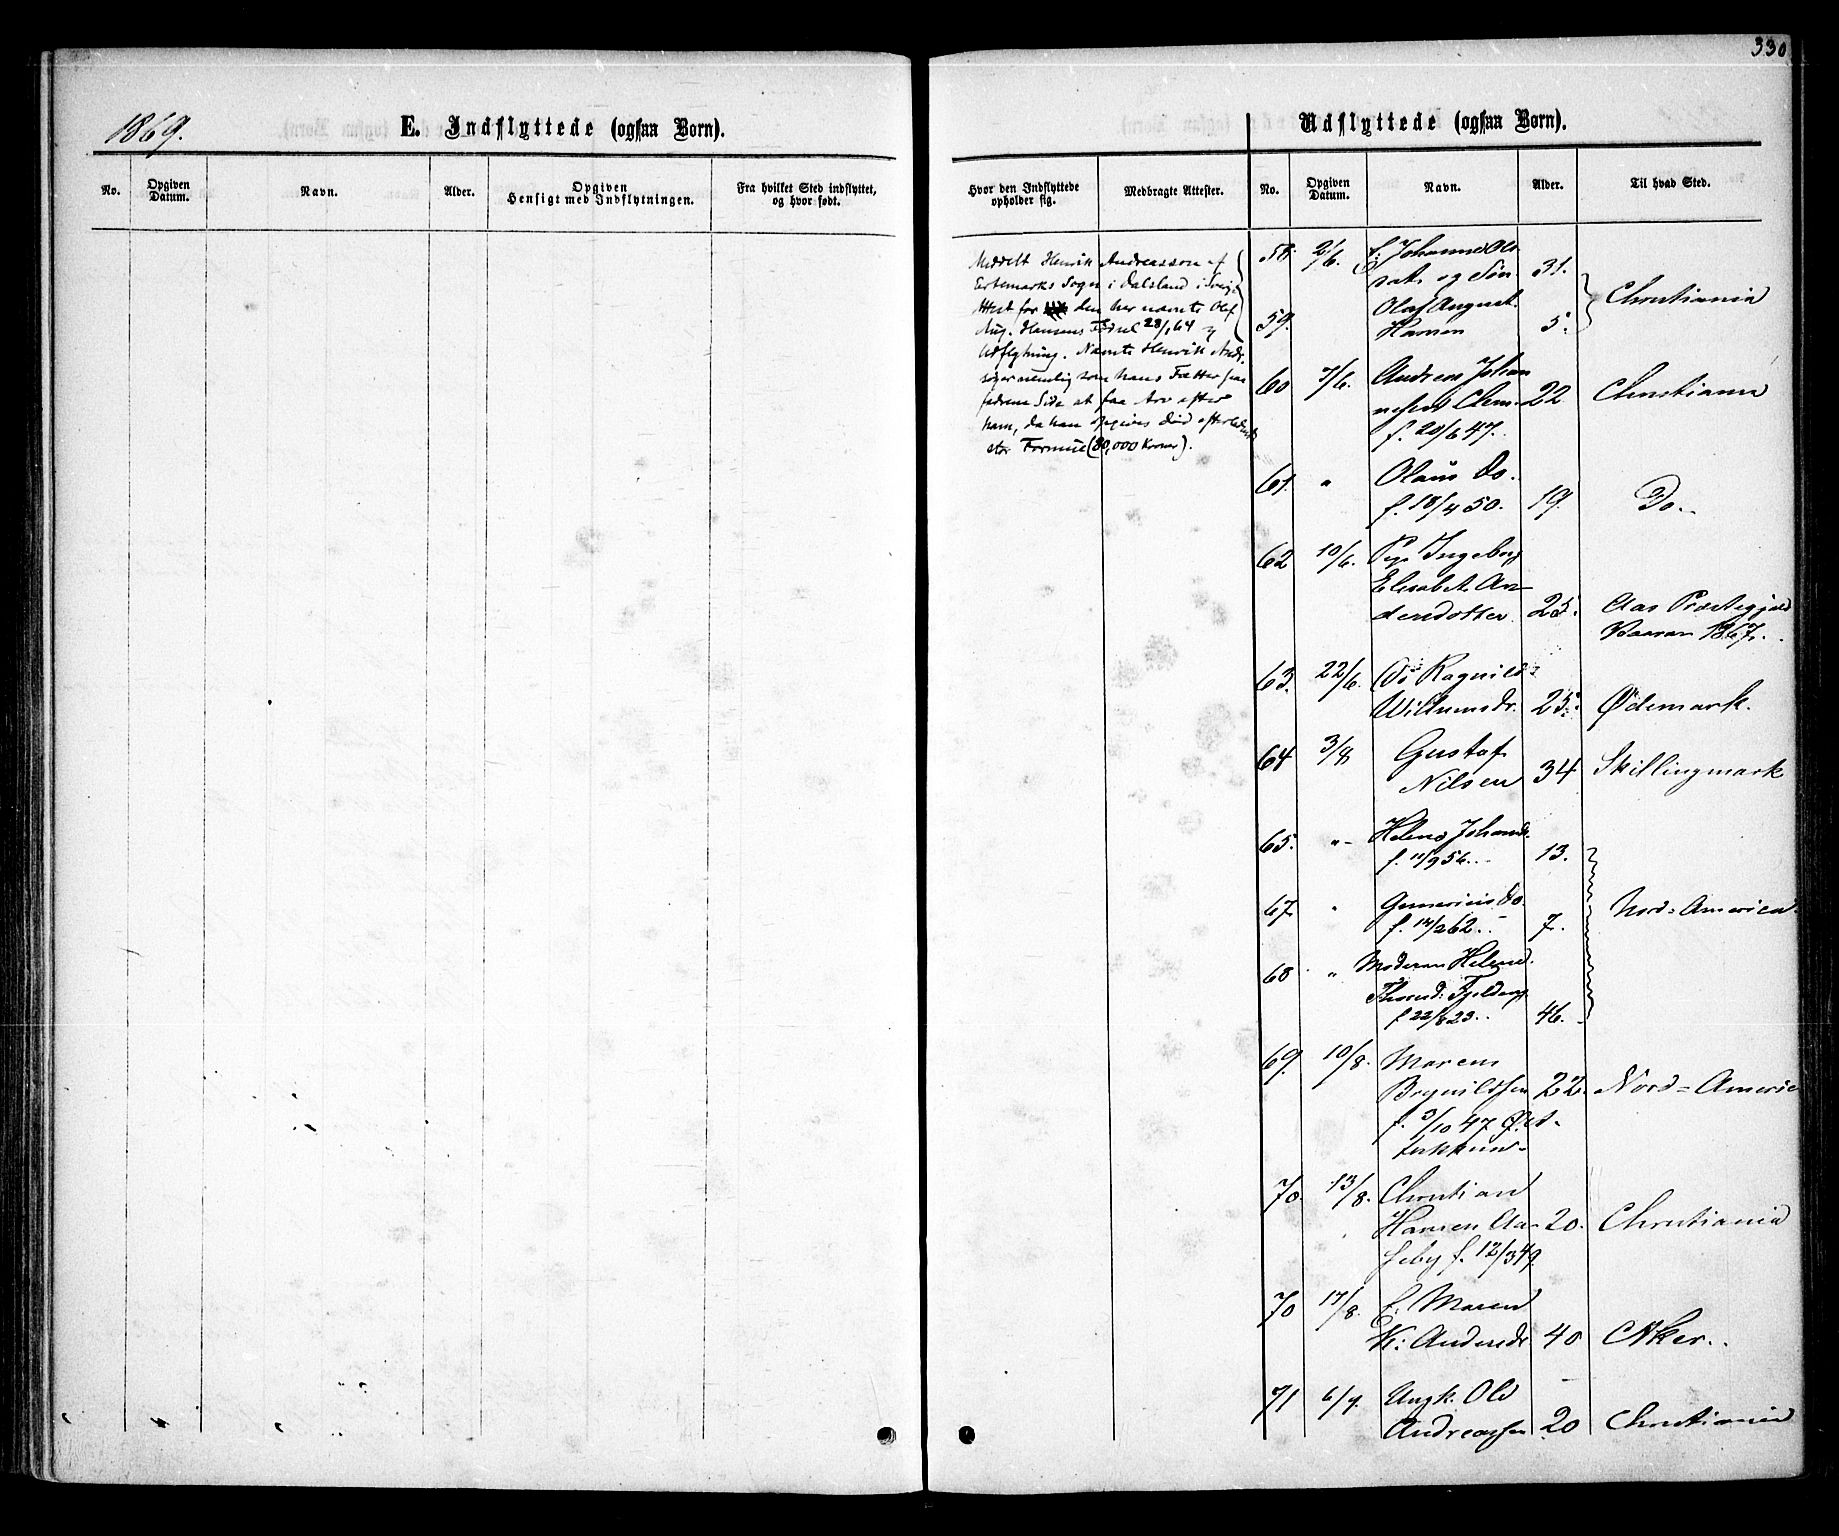 330
1869.
E. Indflyttede (ogsaa Born).
Udflyttede (ogsaa Born).
No.
Opgiven Datum.
Navn.
Alder.
Opgiven Hensigt med Indflytningen.
Fra hvilket Sted indflyttet, og hvor født.
Hvor den Indflyttede opholder sig.
Medbragte Attester.
No.
Opgiven Datum.
Navn.
Alder.
Til hvad Sted.
Meddelt Henrik Andreasson af
Ertemarks Sogn i Dalsland i Sverige
Attest for den her nævnte Olaf
Aug. Hansens Fødsel 28/1 64 og
Udflytning. Nævnte Henrik Andr.
søger nemlig som hans Fætter paa
fædrene Side at faa Arv efter
ham, da han opgives død efterladende
stor Formue (80,000 Kroner).
58. 2/6. f. Johanne Ols-
datr og Søn 31.
59. Olaf August
Hansen 5. Christiania
60 7/6. Andreas Johan
nesen 22 Christiania
f. 20/6 47.
61. " Olaus Do.
f. 18/4 50. 19. Do.
62 10/6. Pige Ingeborg
Elisabet An-
dersdotter 25. Aas Præstegjæld
1867.
63. 22/6. Do Ragnild
Willumsdr. 25. Ødemark.
64 3/8 Gustaf
Nilsen 34 Skillingmark
65. " Helene Johansdr.
f. 11/9 56. 13.
67 " Do.
f. 14/2 62. 7. Nord-America.
68 " Moderen Helene
Thorsd. f 22/8 23. 46.
69. 10/8. Marens
Brynildsen 22. Nord-Americ
f. 3/10 47
70. 13/8. Christian
Hansen Aa- 20. Christiania
seby f. 12/3 49.
70 17/8. f. Maren
K. Andersdr 40 Aker.
71 6/9. Ungk. Ole
Andreassen 20 Christiania